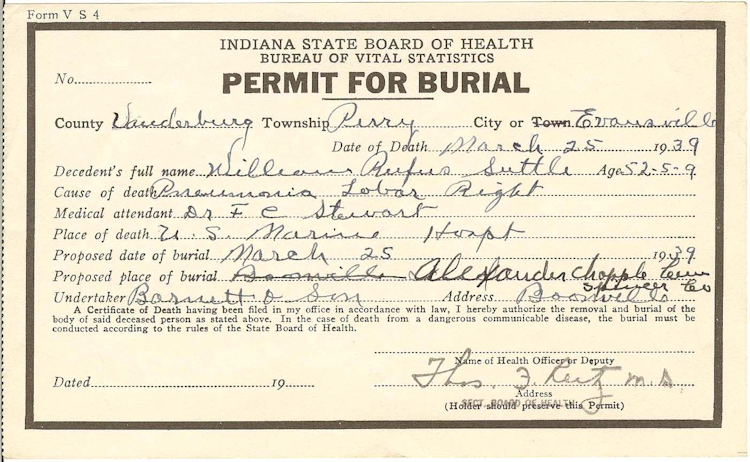 Form V S 4
INDIANA STATE BOARD OF HEALTH
BUREAU OF VITAL STATISTICS
No.
PERMIT FOR BURIAL
County Vanderburg Township Perry City or Town Evansville
Date of Death March 25 1939
Decedent's full name William Rufus Suttle Age 52-5-9
Cause of death Pneumonia Lobar Right
Medical attendant Dr F C Stewart
Place of death U.S. Marine Hospt
Proposed date of burial March 25 1939
Proposed place of burial Boonville Alexander Chapple Cem
Spencer Co
Undertaker Barnett & Son Address Boonville
A Certificate of Death having been filed in my office in accordance with law, I hereby authorize the removal and burial of the
body of said deceased person as stated above. In the case of death from a dangerous communicable disease, the burial must be
conducted according to the rules of the State Board of Health.
Name of Health Officer or Deputy
Dated 19 Thos. F. Reitz M.D.
Address
SECT. BOARD OF HEALTH
(Holder should preserve this Permit)